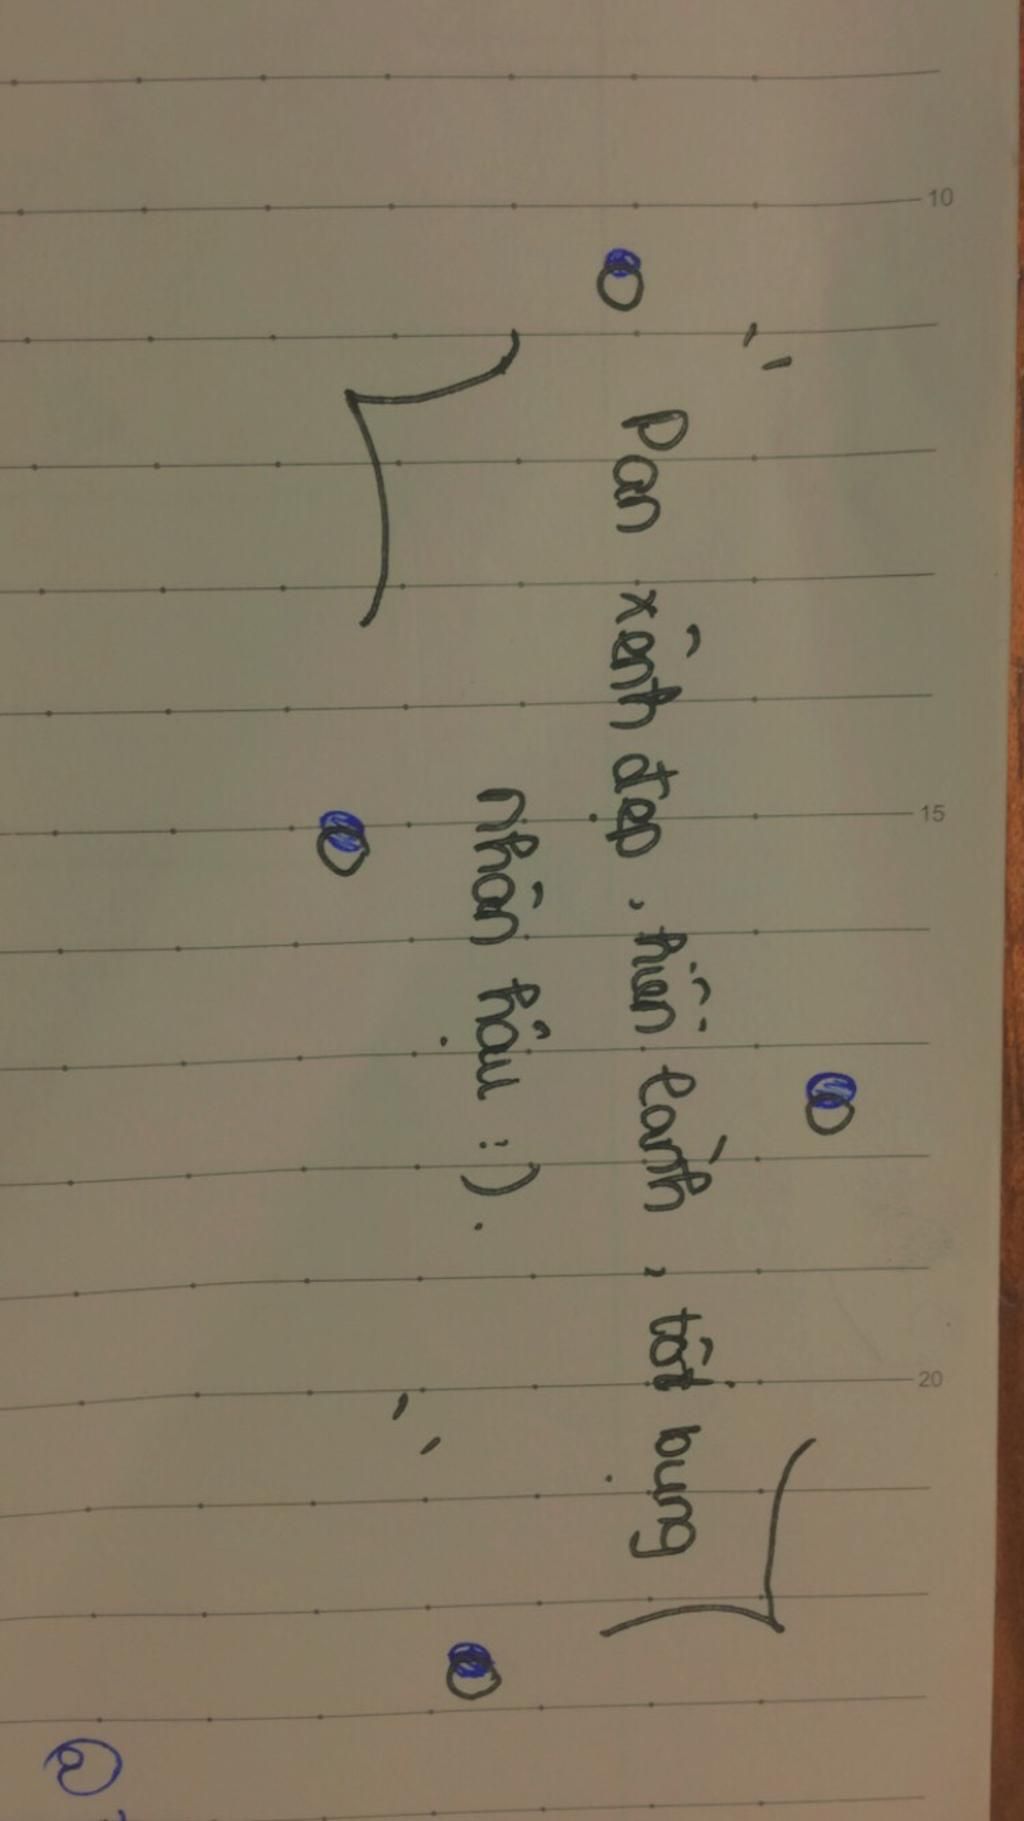 " Pan xênh đẹp, hiền lành, tốt bụng
nhân hậu :). "
10
15
20